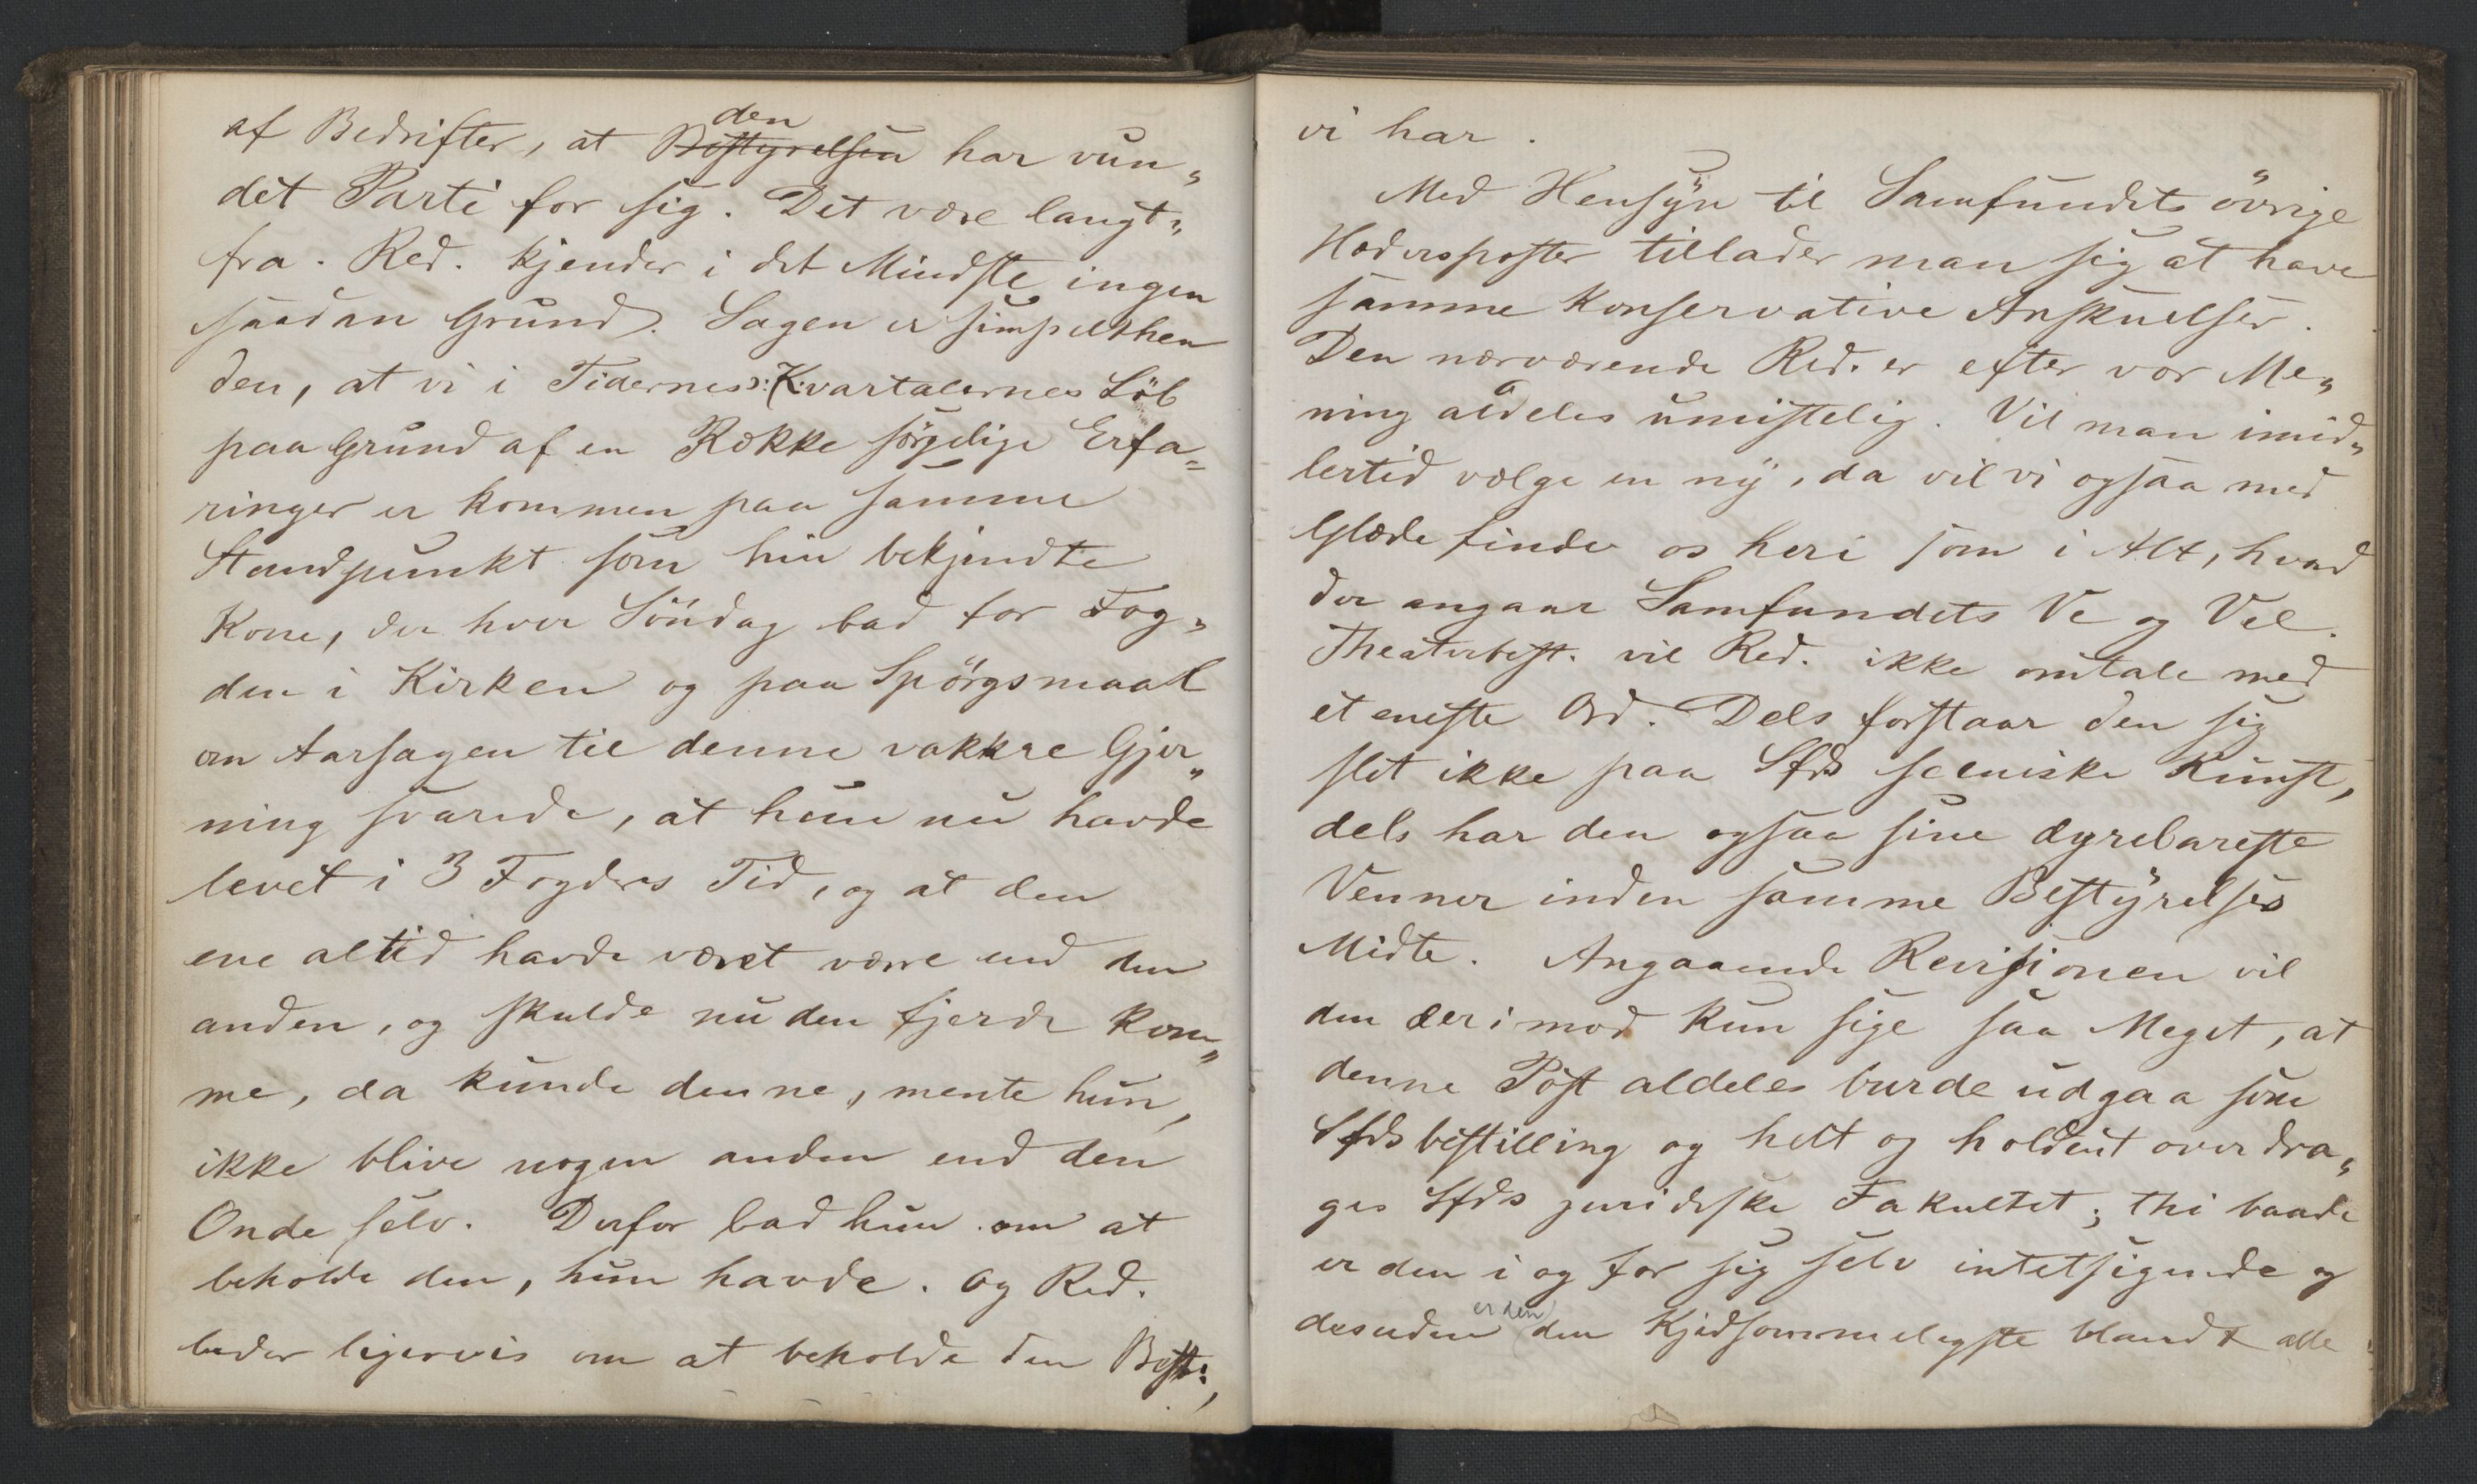 af Bedrifter, at Bestyrelsen den har vun„
det Parti for sig. Det være langt„
fra. Red. kjender i det Mindste ingen
saadan Grund. Sagen er simpelthen
den, at vi i Tidernes ɔ: Kvartalernes Löb
paa Grund af en Række sörgelige Erfa„
ringer er kommen paa samme
Standpunkt som hin bekjendte
Kone, der hver Söndag bad for Fog„
den i Kirken og paa Spörgsmaal
om Aarsagen til denne vakkre Gjer„
ning svarede, at hun nu havde
levet i 3 Fogders Tid, og at den
ene altid havde været værre end den
anden, og skulde nu den fjerde kom„
me, da kunde denne, mente hun,
ikke blive nogen anden end den
Onde selv. Derfor bad hun om at
beholde den, hun havde. Og Red.
beder ligervis om at beholde den Best:,
vi har.
Med Hensyn til Samfundets övrige
Hædersposter tillader man sig at have
samme konservative Anskuelser.
Den nærværende Red. er efter vor Me„
ning aldeles umistelig. Vil man imid„
lertid vælge en ny, da vil vi ogsaa med
Glæde finde os heri som i Alt, hvad
der angaar Samfundets Ve og Vel.
Theaterbest. vil Red. ikke omtale med
et eneste Ord. Dels forstaar den sig
slet ikke paa Sfds sceniske Kunst,
dels har den ogsaa sine dyrebareste
Venner inden samme Bestyrelses
Midte. Angaaende Revisionen vil
den derimod kun sige saa Meget, at
denne Post aldeles burde udgaa som
Sfdsbestilling og helt og holdent overdra„
ges Sfds juridiske Fakultet; thi baade
er den i og for sig selv intetsigende og
desuden er den den kjedsommeligste blandt alle